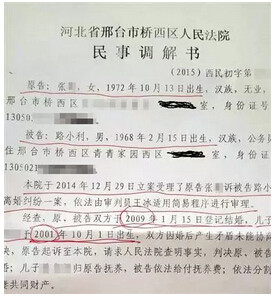 河北省邢台市桥西区人民法院
民事调解书
（2015）西民初字第
原告：张 ，女，1972年10月13日出生，汉族，无业，
市桥西区 室，身份证号
13050
被告：路小利，男，1968年2月15日出生，汉族，公务员
住邢台市桥西区青青家园西区 室，身份证号
1305021
本院于2014年12月29日立案受理了原告张 诉被告路小
离婚纠纷一案，依法由审判员王冰适用简易程序进行审理。
经查，原、被告双方于2009年1月15日登记结婚，儿子
于2001年10月1日出生，双方因婚后产生矛盾未能协
决，原告起诉至本院，请求人民法院查明事实，判决原、被告
儿子 归原告抚养、被告依法给付抚养费；依法分割
共同财产。